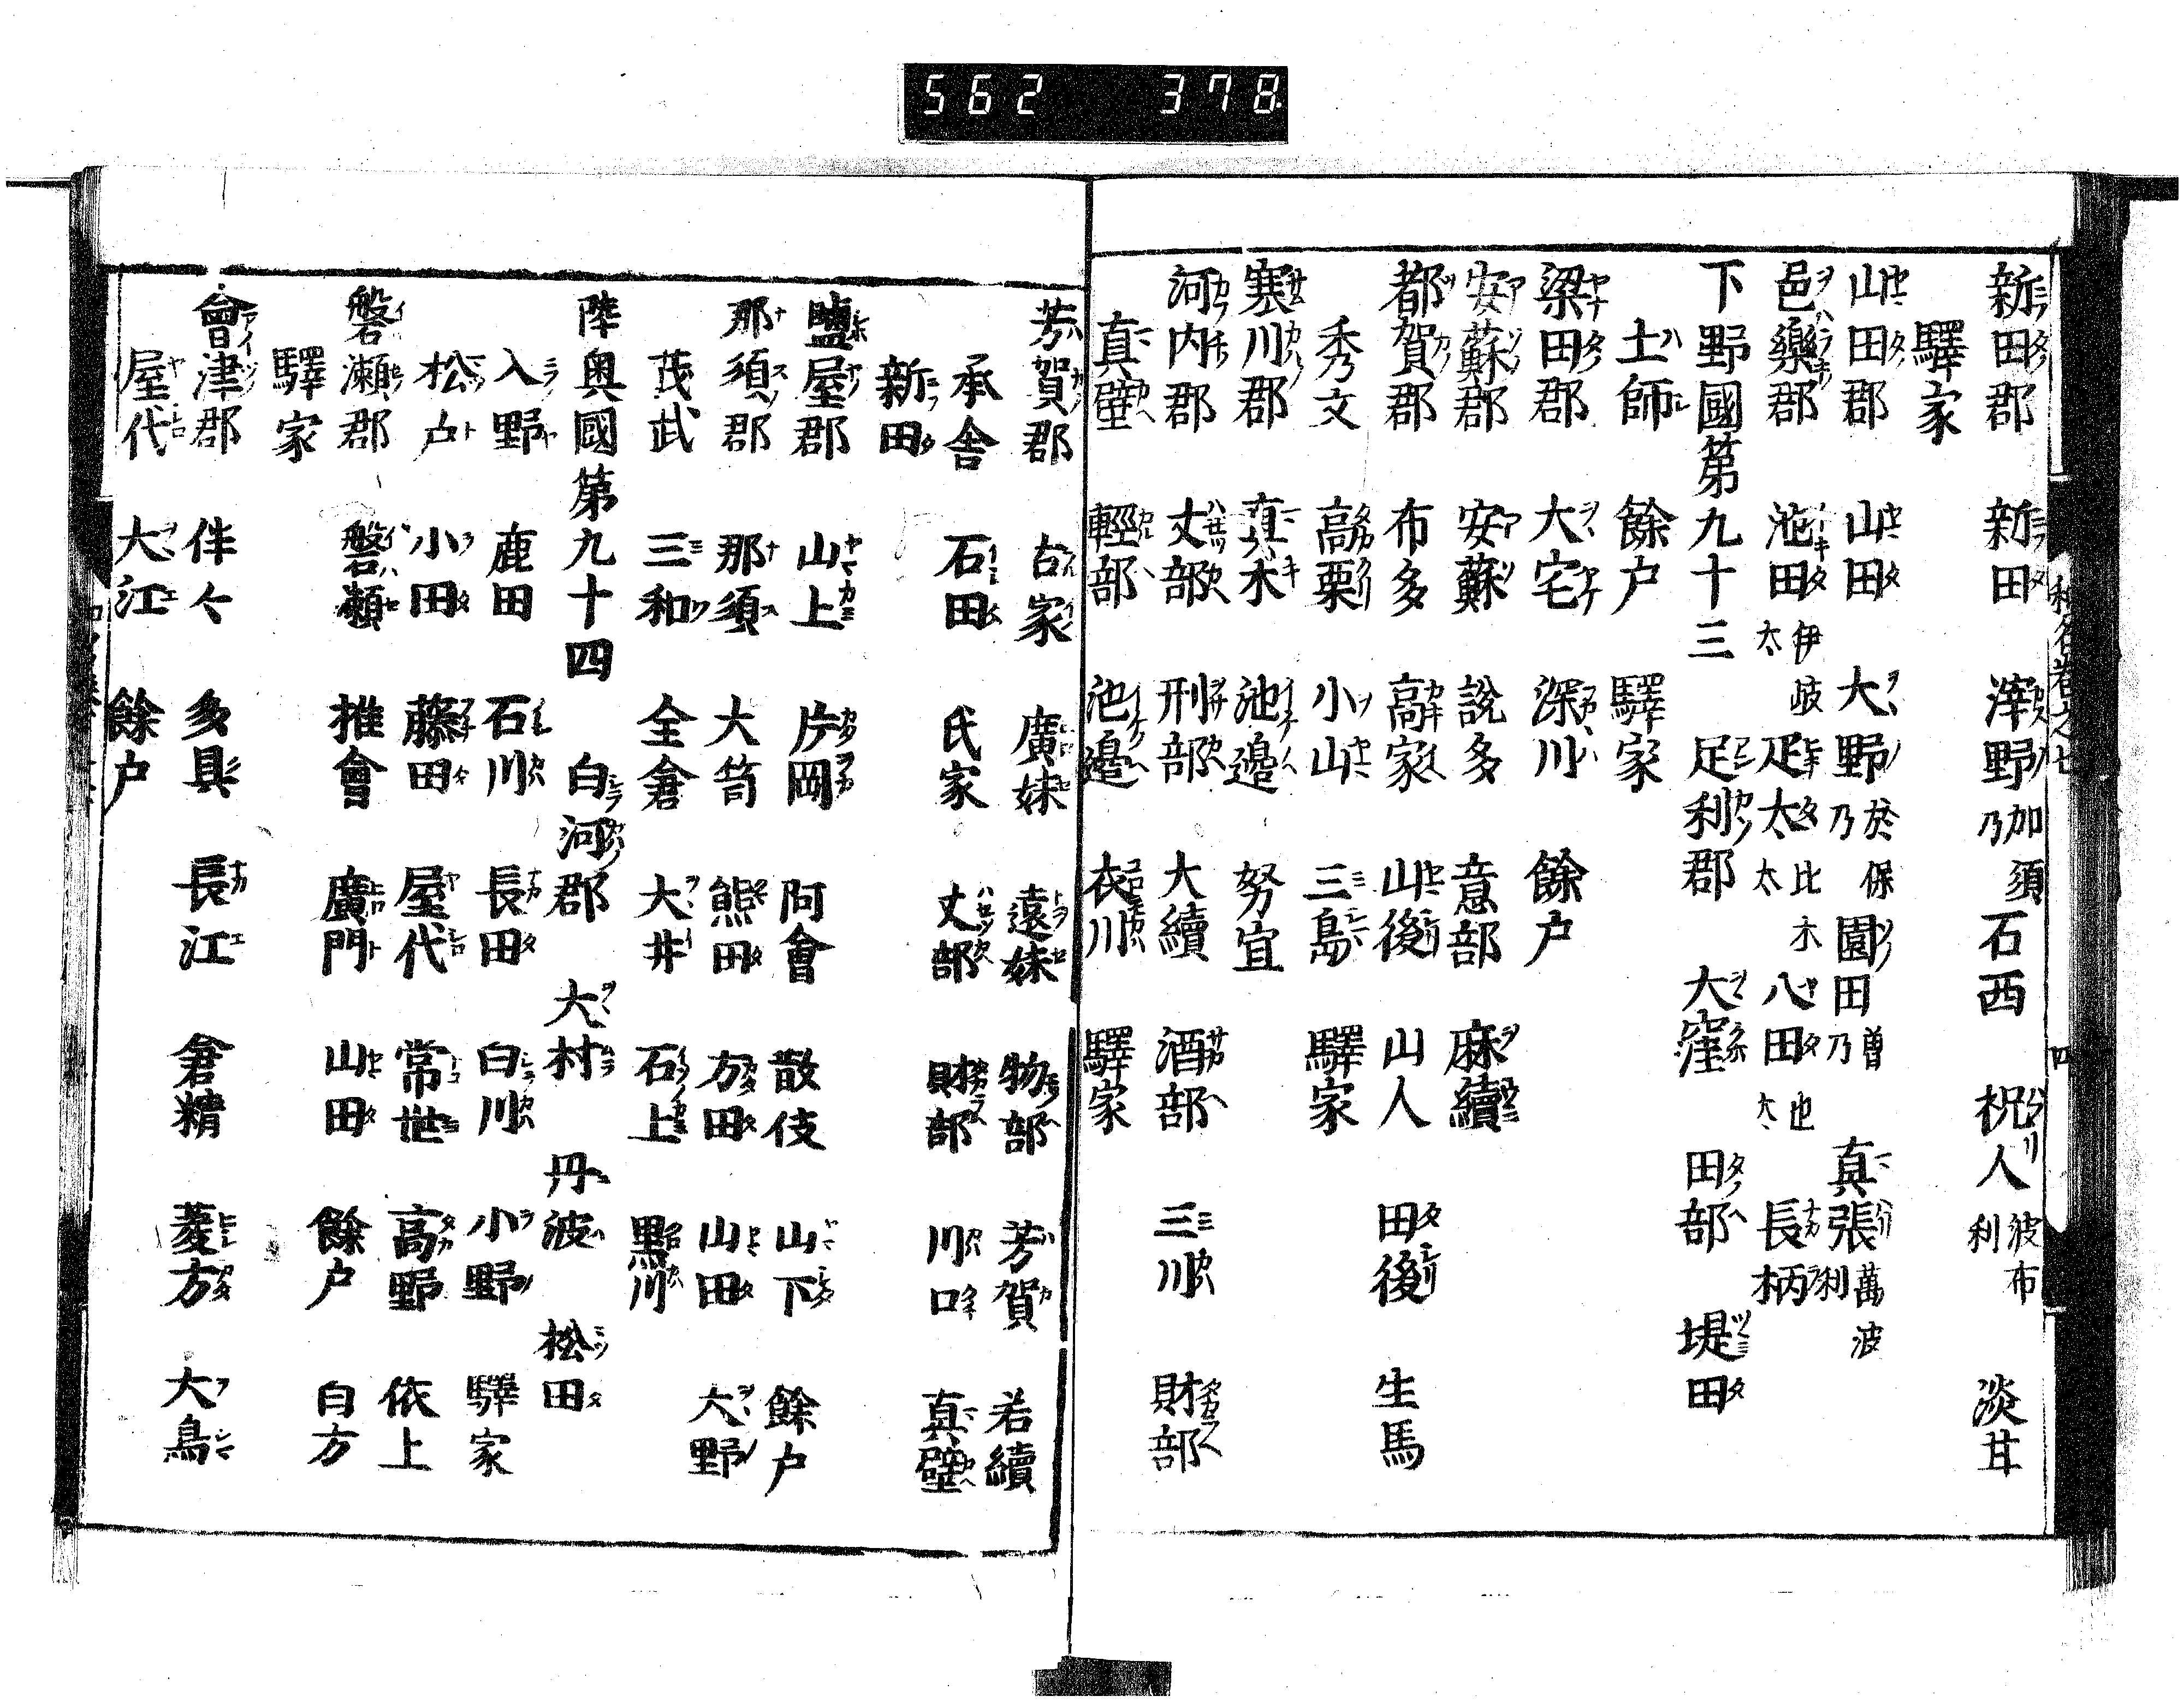 562 378
新田郡 新田 滓野 加須乃 石西 祝人 波布利 淡甘
驛家
山田郡 山田 大野 於保乃 園田 曽乃 真張 萬波利
邑樂郡 池田 伊岐太 疋太 比木太 八田 也太 長柄
下野國第九十三 足利郡 大窪 田部 堤田
土師 餘户 驛家
梁田郡 大宅 深川 餘户
安蘇郡 安蘇 說多 意部 麻續
都賀郡 布多 高家 山後 山人 田後 生馬
秀文 高栗 小山 三島 驛家
寒川郡 真木 池邉 努宜
河内郡 丈部 刑部 大續 酒部 三川 財部
真壁 輕部 池邉 衣川 驛家
芳賀郡 古家 廣妹 遠妹 物部 芳賀 若續
承舎 石田 氏家 丈部 財部 川口 真壁
新田
鹽屋郡 山上 片岡 阿會 散伎 山下 餘户
那須郡 那須 大笥 熊田 方田 山田 大野
茂武 三和 全倉 大井 石上 黒川
陸奥國第九十四 白河郡 大村 丹波 松田
入野 鹿田 石川 長田 白川 小野 驛家
松户 小田 藤田 屋代 常世 高野 依上
磐瀬郡 磐瀬 推會 廣門 山田 餘户 白方
驛家
會津郡 伴々 多具 長江 倉精 菱方 大島
屋代 大江 餘户